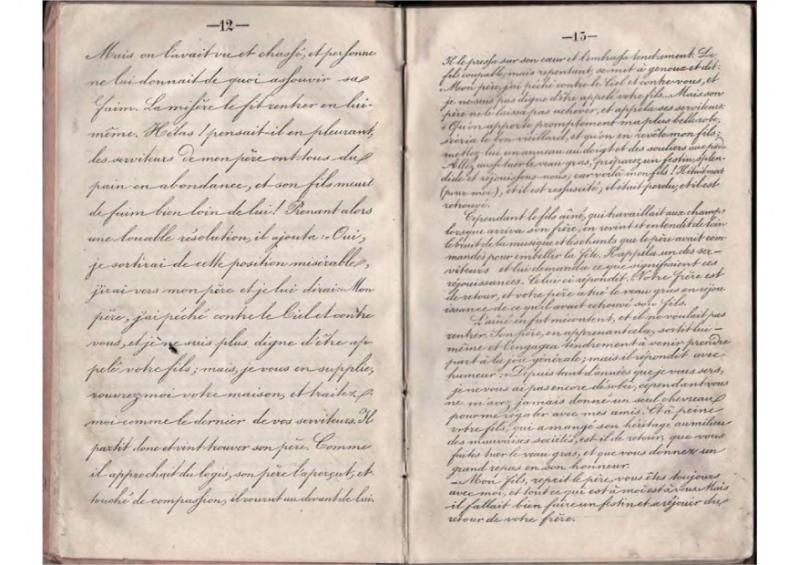 —12—
Mais on l'avait vu et chassé, et personne
ne lui donnait de quoi assouvir sa
faim. La misère le fit rentrer en lui-
même. Hélas! pensait-il en pleurant,
les serviteurs de mon père ont tous du
pain en abondance, et son fils meurt
de faim bien loin de lui! Prenant alors
une louable résolution, il ajouta: Oui,
je sortirai de cette position misérable,
j'irai vers mon père et je lui dirai: Mon
père, j'ai péché contre le Ciel et contre
vous, et je ne suis plus digne d'être ap-
pelé votre fils; mais, je vous en supplie,
rouvrez-moi votre maison, et traitez-
moi comme le dernier de vos serviteurs. Il
partit donc et vint trouver son père. Comme
il approchait du logis, son père l'aperçut, et
touché de compassion, il courut au devant de lui.
—13—
Il le pressa sur son cœur et l'embrassa tendrement. Le
fils coupable, mais repentant, se mit à genoux et dit:
«Mon père, j'ai péché contre le Ciel et contre vous, et
je ne suis pas digne d'être appelé votre fils. Mais son
père ne le laissa pas achever, et appela ses serviteurs.
«Qu'on apporte promptement ma plus belle robe,
s'écria le bon vieillard, et qu'on en revête mon fils;
mettez-lui un anneau au doigt et des souliers aux pieds
Allez aussi tuer le veau gras, préparez un festin splen-
dide et réjouissons-nous; car voilà mon fils! Il était mort
(pour moi), et il est ressuscité; il était perdu, et il est
retrouvé.
Cependant le fils aîné, qui travaillait aux champs
lorsque arriva son frère, en revint et entendit de loin
le bruit de la musique et les chants que le père avait com-
mandés pour embellir la fête. Il appela un des ser-
viteurs et lui demanda ce que signifiaient ces
réjouissances. Celui-ci répondit: Votre frère est
de retour, et votre père a tué le veau gras en réjou-
issance de ce qu'il avait retrouvé son fils.
L'aîné en fut mécontent, et il ne voulait pas
rentrer. Son père, en apprenant cela, sortit lui-
même et l'engagea tendrement à venir prendre
part à la joie générale; mais il répondit avec
humeur: «Depuis tant d'années que je vous sers,
je ne vous ai pas encore désobéi, cependant vous
ne m'avez jamais donné un seul chevreau
pour me régaler avec mes amis. Et à peine
votre fils, qui a mangé son héritage au milieu
des mauvaises sociétés, est-il de retour, que vous
faites tuer le veau gras, et que vous donnez un
grand repas en son honneur.
—Mon fils, reprit le père, vous êtes toujours
avec moi, et tout ce qui est à moi est à vous. Mais
il fallait bien faire un festin et se réjouir du
retour de votre frère.